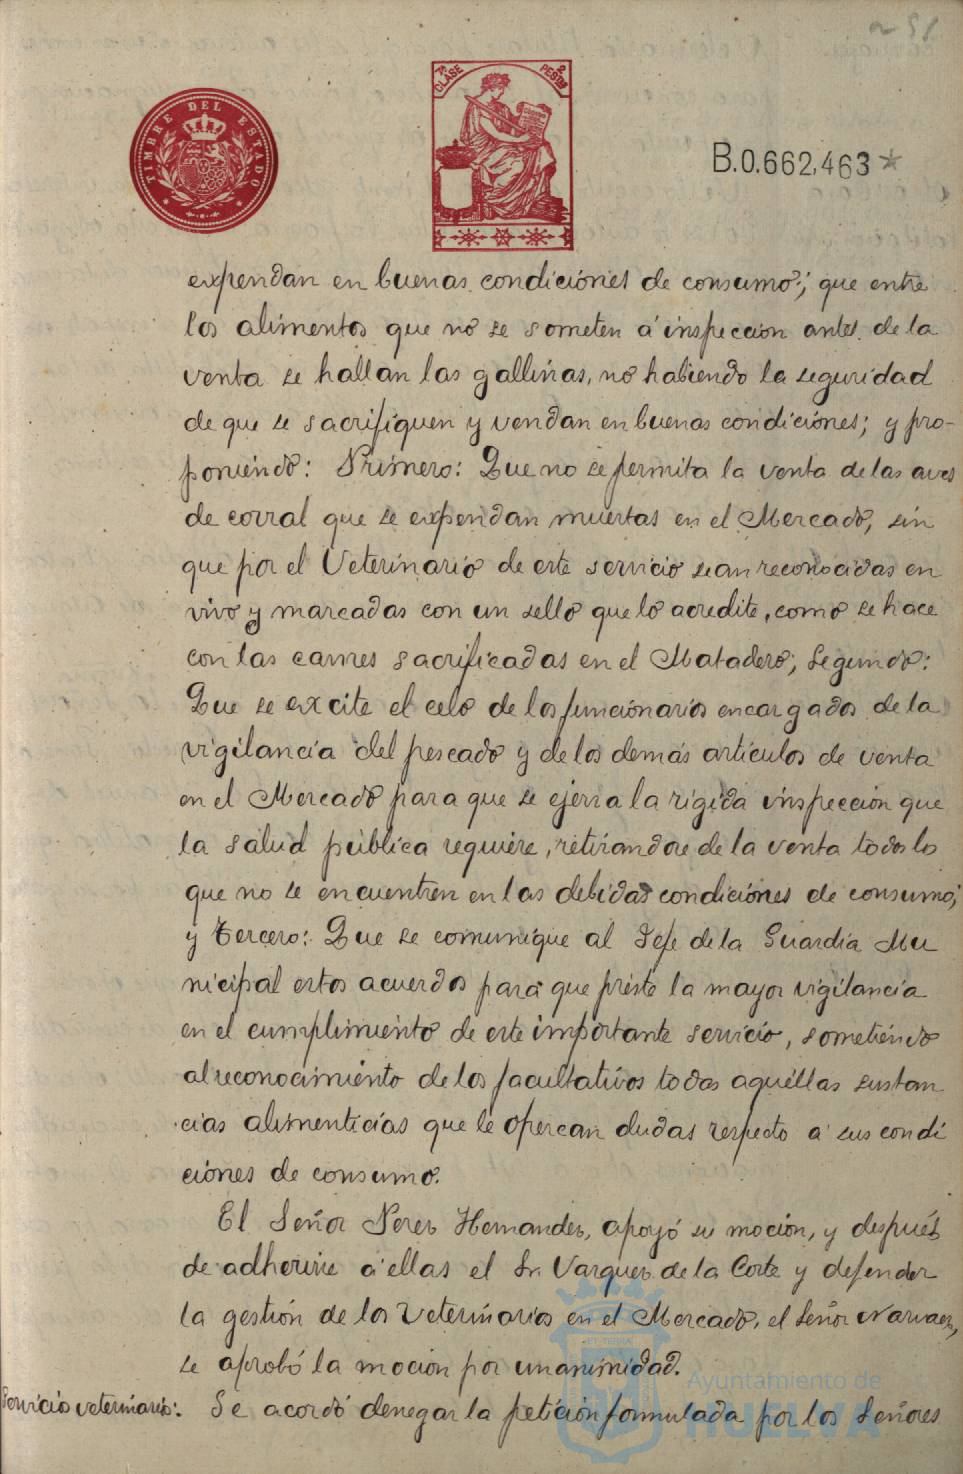 51
TIMBRE DEL ESTADO
7ª CLASE
2 PESTAS
B.0.662,463*
expendan en buenas condiciones de consumo; que entre
los alimentos que no se someten á inspeccion antes de la
venta se hallan las gallinas, no habiendo la seguridad
de que se sacrifiquen y vendan en buenas condiciones; y pro-
poniendo: Primero: Que no se permita la venta de las aves
de corral que se expendan muertas en el Mercado, sin
que por el Veterinario de este servicio sean reconocidas en
vivo y marcadas con un sello que lo acredite, como se hace
con las carnes sacrificadas en el Matadero; Segundo:
Que se excite el celo de los funcionarios encargados de la
vigilancia del pescado y de los demás artículos de venta
en el Mercado para que se ejerza la rígida inspección que
la salud pública requiere, retirandose de la venta todos los
que no se encuentren en las debidas condiciones de consumo;
y Tercero: Que se comunique al Jefe de la Guardia Mu
nicipal estos acuerdos para que preste la mayor vigilancia
en el cumplimiento de este importante servicio, sometiendo
al reconocimiento de los facultativos todas aquellas sustan
cias alimenticias que le ofrezcan dudas respecto a sus condi
ciones de consumo.
El Señor Perez Hernandez, apoyó su moción, y después
de adherirse a ellas el Sr. Vazquez de la Corte y defender
la gestión de los Veterinarios en el Mercado, el Señor Narvaez,
se aprobó la moción por unanimidad.
Servicio veterinario:. Se acordó denegar la petición formulada por los Señores
Ayuntamiento de
HUELVA